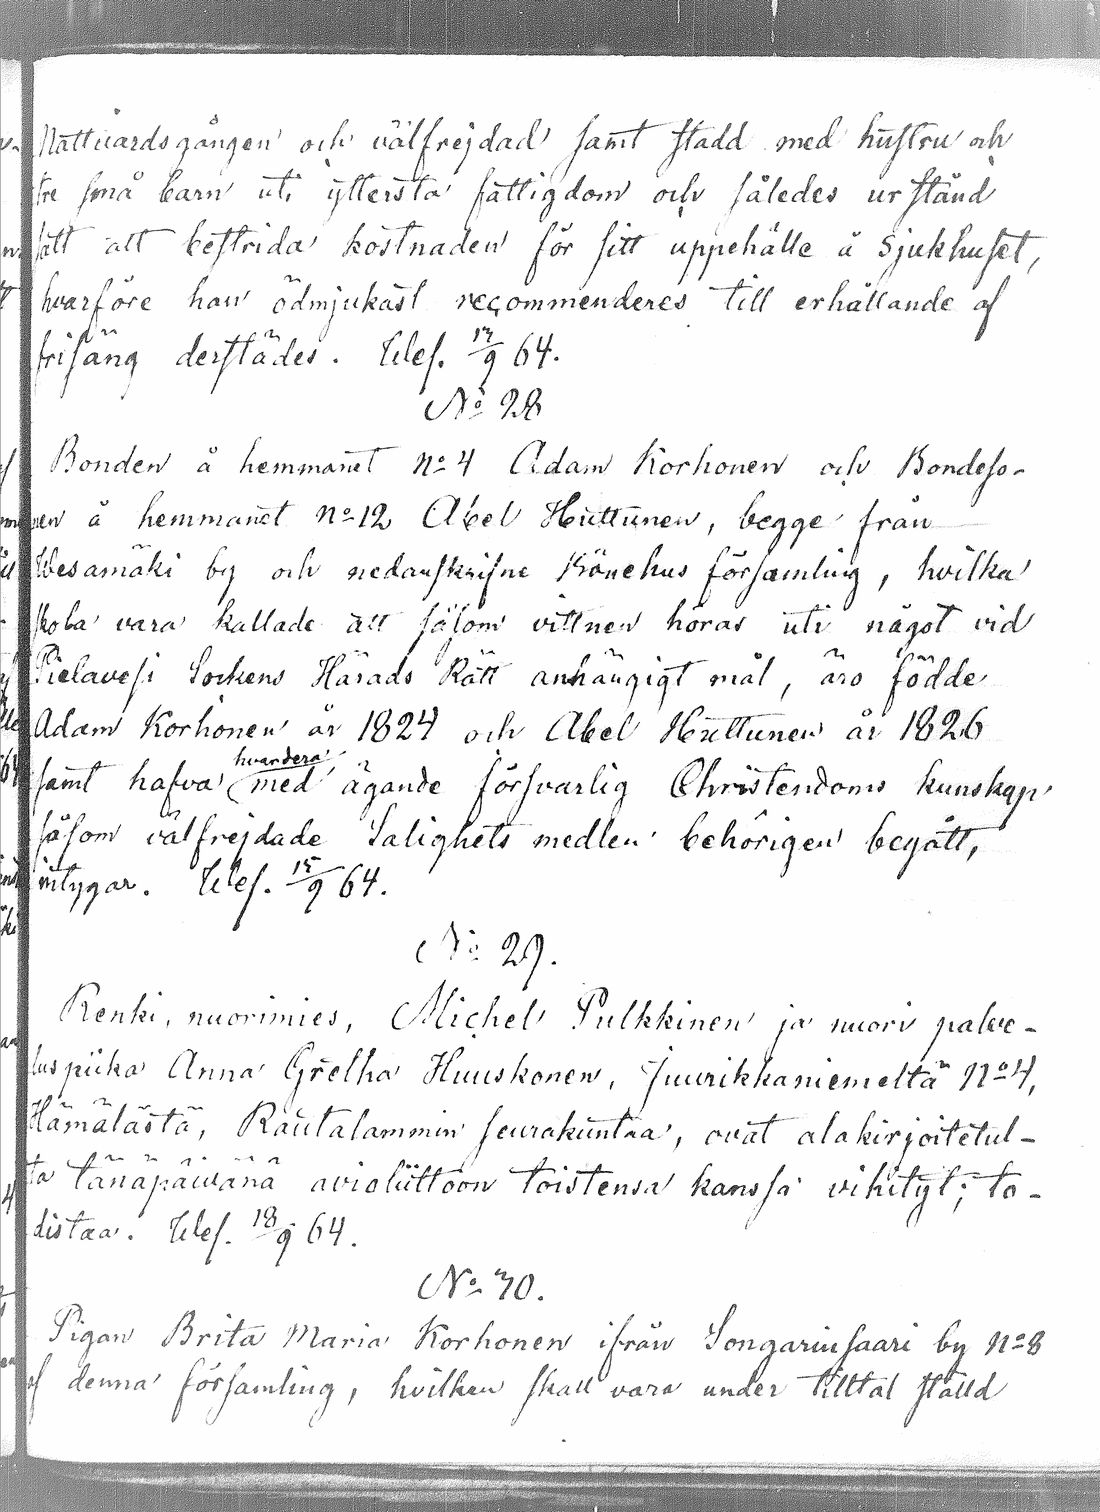 Nattvardsgången och välfrejdad samt stadd med hustru och
tre små barn uti yttersta fattigdom och således ur stånd
satt att bestrida kostnaden för sitt uppehälle å Sjukhuset,
hvarföre han ödmjukast recommenderes till erhållande af
frisäng derstädes. Wesf. 13/9 64.
No 28
Bonden å hemmanet No 4 Adam Korhonen och Bondeso-
nen å hemmanet No 12 Abel Huttunen, begge från
Wesamäki by och nedanskrifne församling, hvilka
skola vara kallade att såsom vittnen höras uti något vid
Pielavesi Sockens Härads Rätt anhängigt mål, äro födde
Adam Korhonen år 1824 och Abel Huttunen år 1826
samt hafva hvardera med ägande försvarlig Christendoms kunskap
såsom välfrejdade Salighets medlen behörigen begått,
intygar. Wesf. 15/9 64.
No 29.
Renki, nuorimies, Michel Pulkkinen ja nuori palve-
luspiika Anna Gretha Huuskonen, Juurikkaniemeltä No 4,
Hämälästä, Rautalammin seurakuntaa, ovat alakirjoitetul-
ta tänäpäivänä avioliittoon toistensa kanssa vihityt; to-
distaa. Wesf. 18/9 64.
No 30.
Pigan Brita Maria Korhonen ifrån Songarinsaari by No 8
af denna församling, hvilken skall vara under tilltal ställd